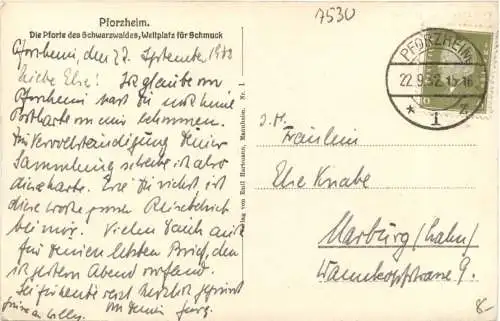 Pforzheim.
Die Pforte des Schwarzwaldes, Weltplatz für Schmuck
Pforzheim, den 22. September 1932
Liebe Else! Ich glaube von
Pforzheim hast Du noch keine
Postkarte von mir bekommen.
Zur Vervollständigung Deiner
Sammlung schreibe ich also
diese Karte.
diese Woche grosser Reisebetrieb
bei mir. Vielen Dank auch
für Deinen letzten Brief, den
ich gestern Abend vorfand.
Sei für heute recht herzlich gegrüsst
von Deinem
Verlag von Emil Hartmann, Mannheim. Nr. 1
7530
PFORZHEIM
22.9.32.15-16
* 1
Fräulein
Else Knabe
Marburg (Lahn)
Wannkopfstrasse 9.
8-